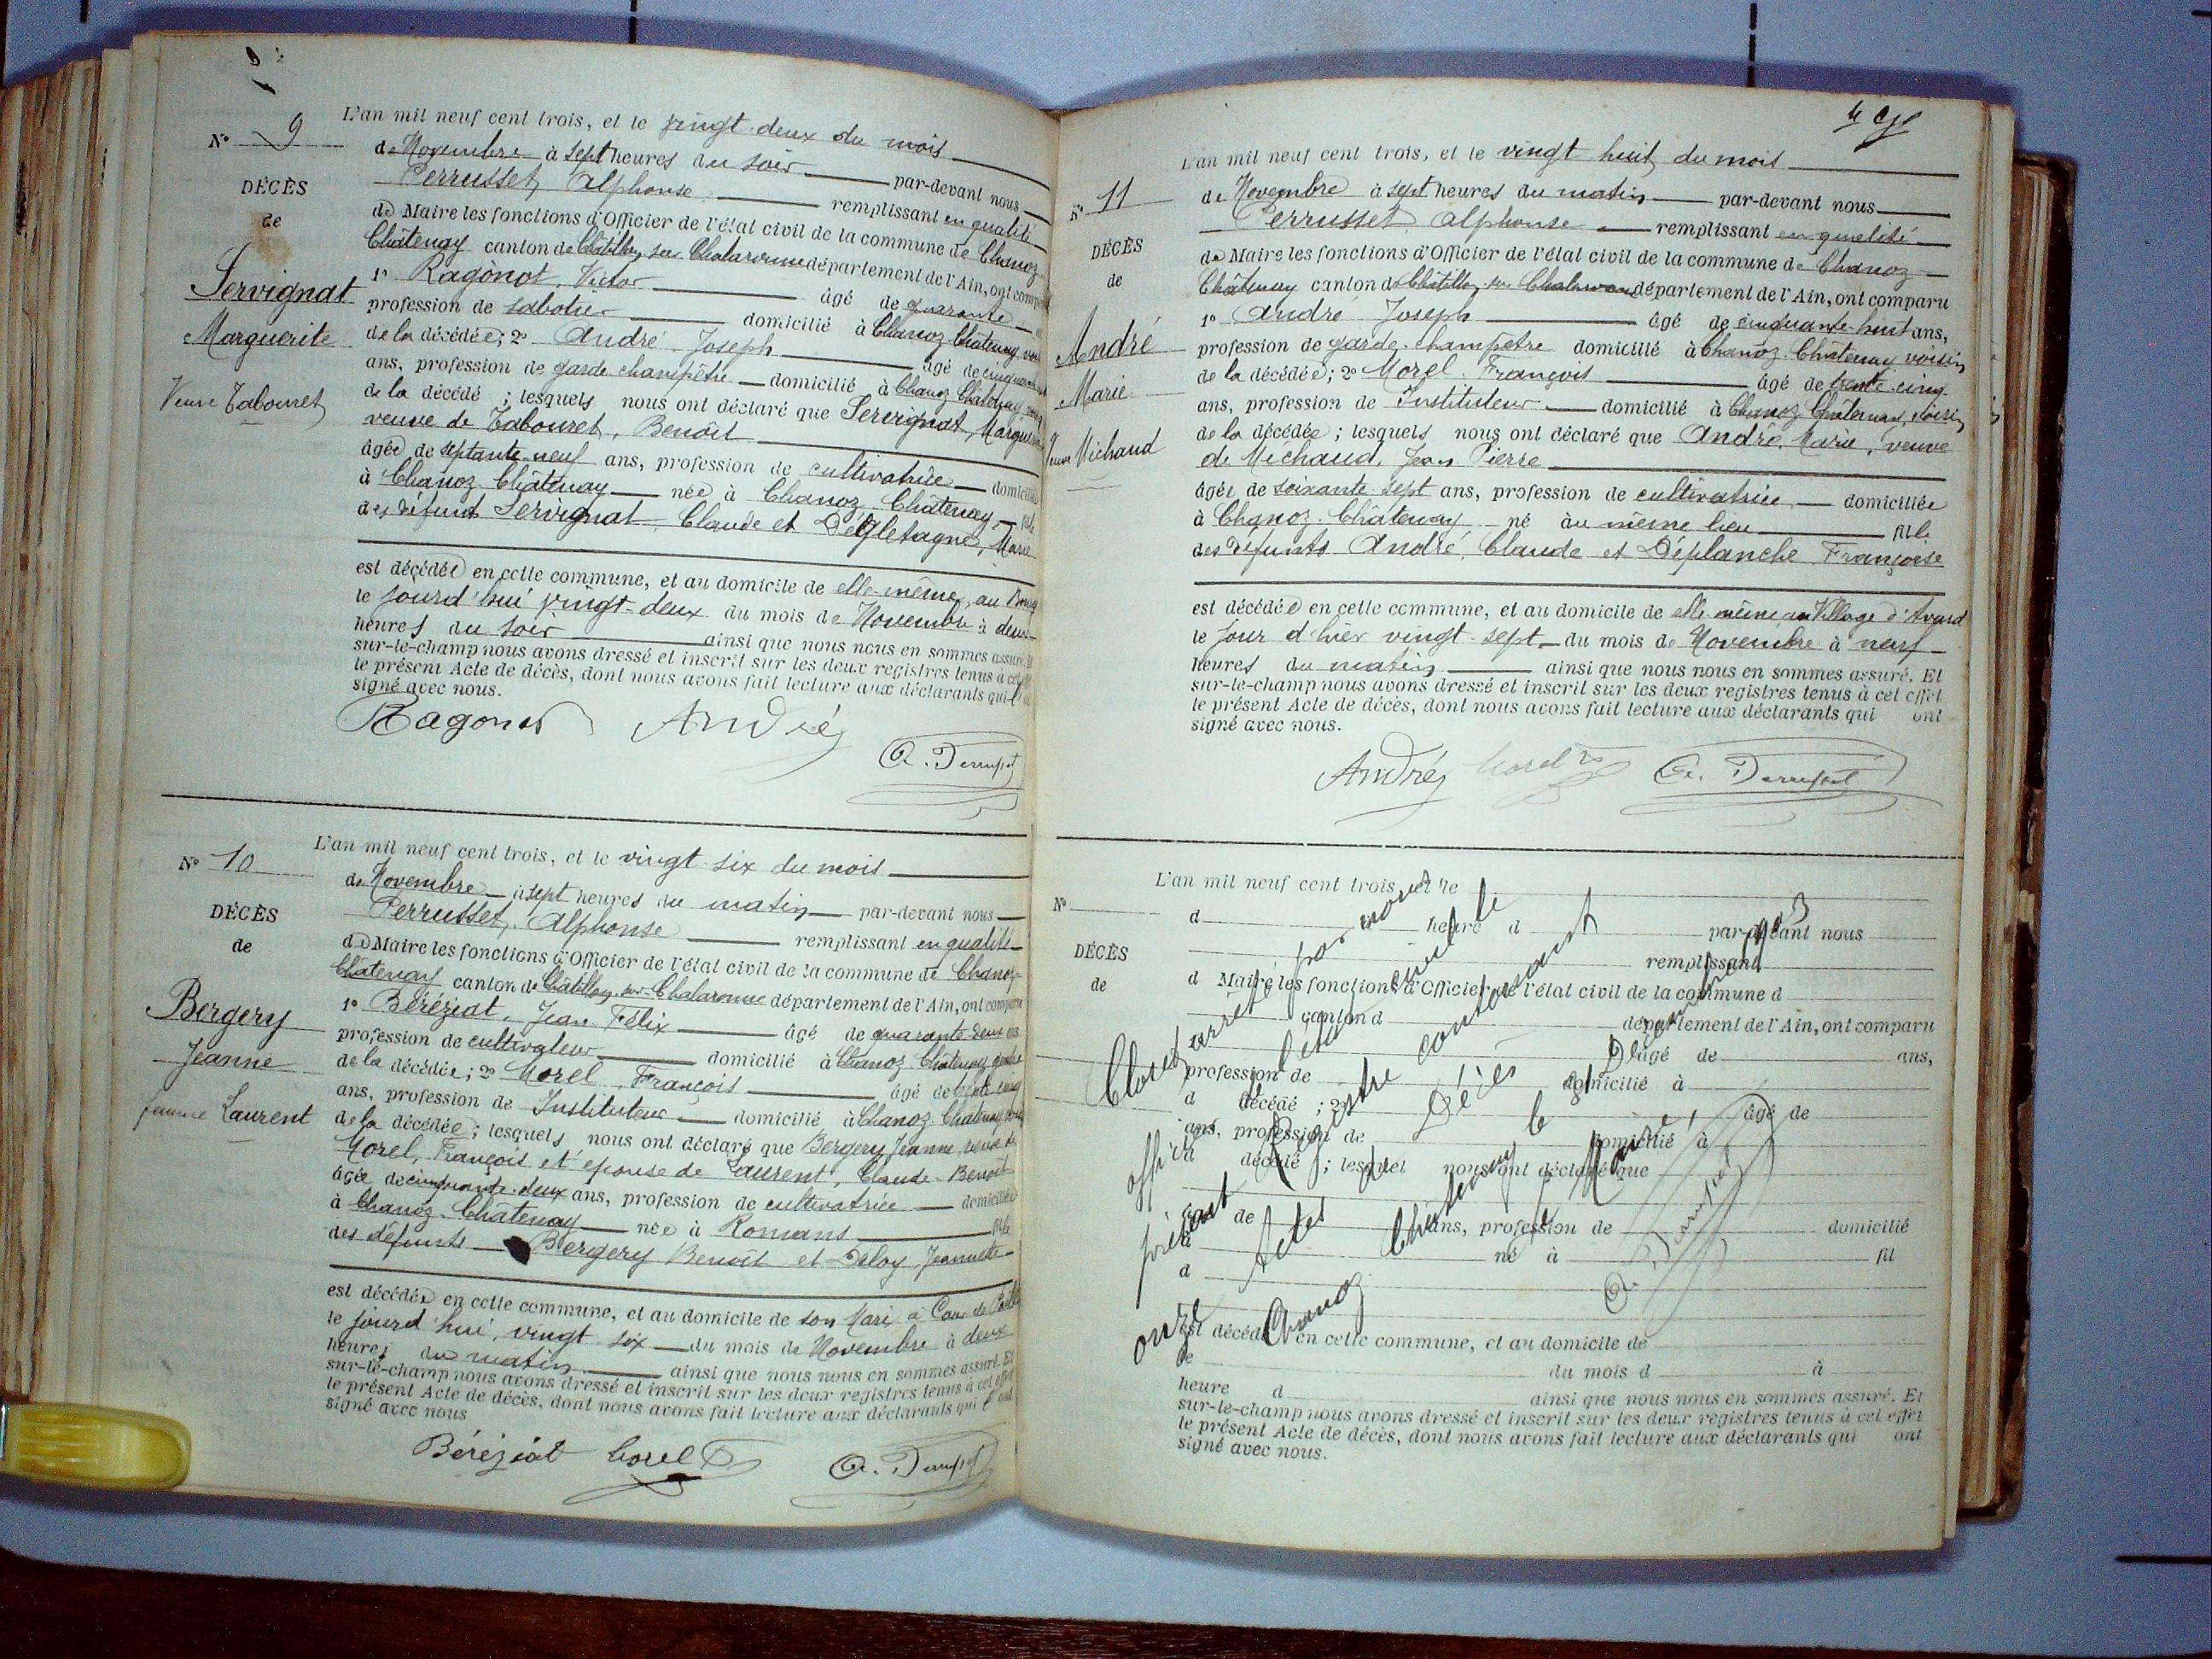 L'an mil neuf cent trois, et le vingt-deux du mois
N° 9
de Novembre à sept heures du soir par-devant nous
DÉCÈS
de
Perrusset, Alphonse remplissant en qualité
de Maire les fonctions d'Officier de l'état civil de la commune de Chanoz-
Châtenay canton de Châtillon sur Chalaronne département de l'Ain, ont comparu
Servignat
Marguerite
Veuve Tabouret
1° Ragonot, Victor âgé de quarante
profession de sabotier domicilié à Chanoz-Châtenay
de la décédée; 2° André Joseph âgé de
ans, profession de garde champêtre domicilié à Chanoz Châtenay
de la décédé ; lesquels nous ont déclaré que Servignat, Marguerite
veuve de Tabouret, Benoît
âgée de septante-neuf ans, profession de cultivatrice domiciliée
à Chanoz-Châtenay née à Chanoz-Châtenay fille
des défunts Servignat, Claude et Marie
est décédée en cette commune, et au domicile de elle-même, au Bourg
le jourd'hui vingt-deux du mois de Novembre à deux
heures du soir ainsi que nous nous en sommes assuré. Et
sur-le-champ nous avons dressé et inscrit sur les deux registres tenus à cet effet
le présent Acte de décès, dont nous avons fait lecture aux déclarants qui ont
signé avec nous.
Ragonot André A. Perrusset
L'an mil neuf cent trois, et le vingt-six du mois
N° 10
de Novembre à sept heures du matin par-devant nous
DÉCÈS
de
Perrusset, Alphonse remplissant en qualité
de Maire les fonctions d'Officier de l'état civil de la commune de Chanoz-
Châtenay canton de Châtillon-sur-Chalaronne département de l'Ain, ont comparu
Bergery
Jeanne
femme Laurent
1° Béréziat, Jean Félix âgé de quarante-deux ans
profession de cultivateur domicilié à Chanoz-Châtenay
de la décédée; 2° Morel, François âgé de trente-cinq
ans, profession de Instituteur domicilié à Chanoz-Châtenay
de la décédée; lesquels nous ont déclaré que Bergery Jeanne, veuve de
Morel, François et épouse de Laurent, Claude-Benoît
âgée de cinquante-deux ans, profession de cultivatrice domiciliée
à Chanoz-Châtenay née à Romans fille
des défunts Bergery Benoît et Deloy Jeannette
est décédée en cette commune, et au domicile de son Mari, à
le jourd'hui vingt six du mois de Novembre à deux
heures du matin ainsi que nous nous en sommes assuré. Et
sur-le-champ nous avons dressé et inscrit sur les deux registres tenus à cet effet
le présent Acte de décès, dont nous avons fait lecture aux déclarants qui ont
signé avec nous
Béréziat Morel F A. Perrusset
L'an mil neuf cent trois, et le vingt huit du mois
N° 11
de Novembre à sept heures du matin par-devant nous
DÉCÈS
de
Perrusset Alphonse remplissant en qualité
de Maire les fonctions d'Officier de l'état civil de la commune de Chanoz-
Châtenay canton de Châtillon-sur-Chalaronne département de l'Ain, ont comparu
André
Marie
Veuve Michaud
1° André Joseph âgé de cinquante-huit ans,
profession de garde-champêtre domicilié à Chanoz-Châtenay voisin
de la décédée; 2° Morel François âgé de trente-cinq
ans, profession de Instituteur domicilié à Chanoz-Châtenay, voisin
de la décédée; lesquels nous ont déclaré que André, Marie, veuve
de Michaud, Jean Pierre
âgée de soixante-sept ans, profession de cultivatrice domiciliée
à Chanoz-Châtenay né au même lieu fille
des défunts André, Claude et Déplanche Françoise
est décédée en cette commune, et au domicile de elle même au Village d'Avard
le jour d'hier vingt-sept du mois de Novembre à neuf
heures du matin ainsi que nous nous en sommes assuré. Et
sur-le-champ nous avons dressé et inscrit sur les deux registres tenus à cet effet
le présent Acte de décès, dont nous avons fait lecture aux déclarants qui ont
signé avec nous.
André Morel F A. Perrusset
L'an mil neuf cent trois, et le
N°
d heure d par-devant nous
DÉCÈS
de
remplissant
d Maire les fonctions d'Officier de l'état civil de la commune d
canton d département de l'Ain, ont comparu
1° âgé de ans,
profession de domicilié à
d décédé ; 2° âgé de
ans, profession de domicilié à
d décédé ; lesquel nous ont déclaré que
de
âgé de ans, profession de domicilié
à né à fil
d
est décédé en cette commune, et au domicile de
le du mois d à
heure d ainsi que nous nous en sommes assuré. Et
sur-le-champ nous avons dressé et inscrit sur les deux registres tenus à cet effet
le présent Acte de décès, dont nous avons fait lecture aux déclarants qui ont
signé avec nous.
Clos et arrêté par nous
officier de l'état civil le
présent Registre contenant
onze Actes de Décès
Chanoz Châtenay le 31 Décembre 1903
Le Maire,
A. Perrusset